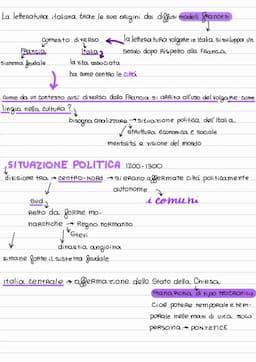 La letteratura italiana trae le sue origini dai diffusi modelli francesi
contesto diverso
la letteratura volgare in Italia si sviluppa un
Francia
Italia
secolo dopo rispetto alla Francia
sistema feudale
la vita associata
ha come centro le città
come da un contesto così diverso dalla Francia si arriva all'uso del volgare come
lingua nella cultura?
bisogna analizzare → situazione politica dell'Italia
struttura economica e sociale
mentalità e visione del mondo
SITUAZIONE POLITICA 1200-1300
divisione tra → centro-nord → si erano affermate città politicamente
autonome
sud
i comuni
Retto da forme mo-
narchiche → Regno normanno
Svevi
dinastia angioina
rimane forte il sistema feudale
italia centrale → affermazione dello Stato della Chiesa
monarchia di tipo teocratico
cioè potere temporale e tem-
porale nelle mani di una sola
persona → pontefice